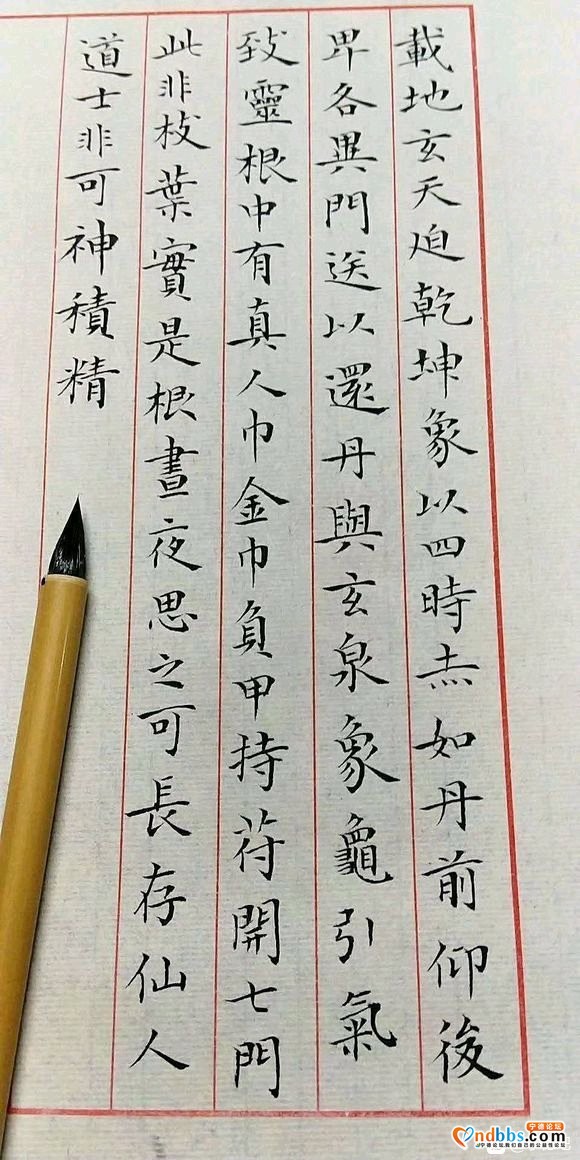 載地玄天迫乾坤象以四時赤如丹前仰後
卑各異門送以還丹與玄泉象龜引氣
致靈根中有真人巾金巾負甲持苻開七門
此非枝葉實是根晝夜思之可長存仙人
道士非可神積精
宁德论坛
ndbbs.com